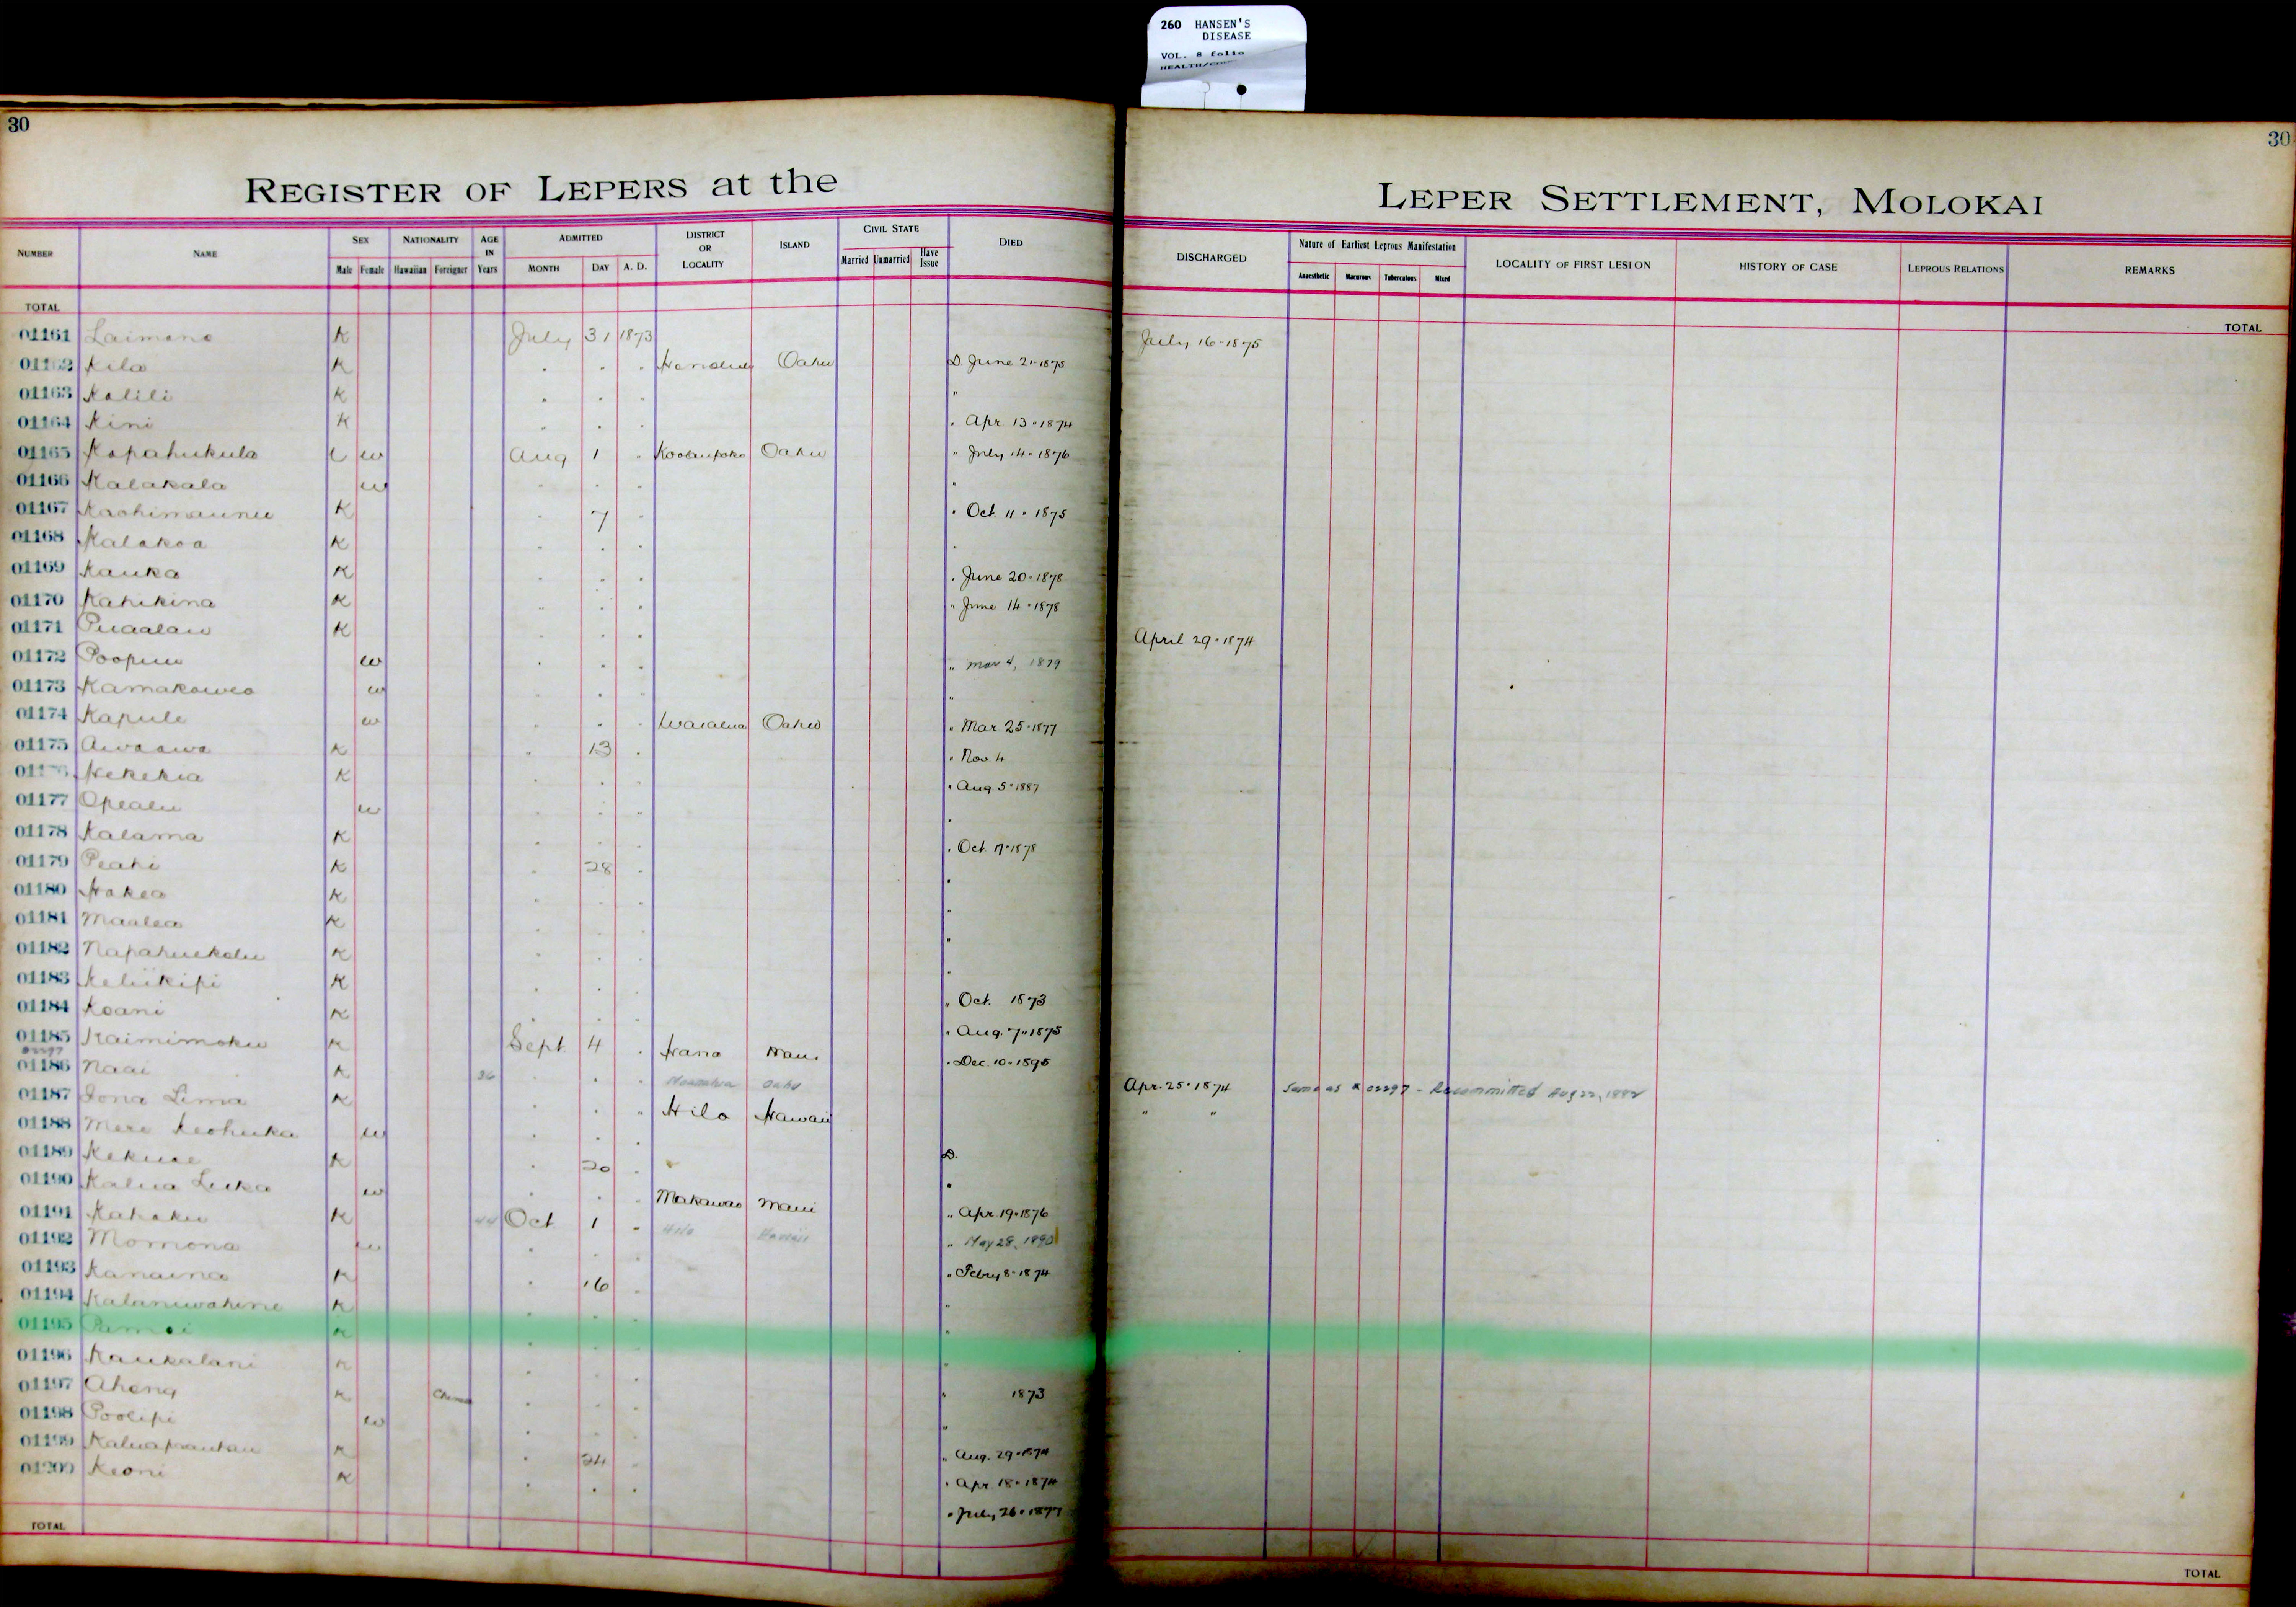 260 HANSEN'S
DISEASE
VOL. 8 folio
30
30
REGISTER OF LEPERS at the
LEPER SETTLEMENT, MOLOKAI
NUMBER NAME SEX Male Female NATIONALITY Hawaiian Foreigner AGE IN Years ADMITTED MONTH DAY A. D. DISTRICT OR LOCALITY ISLAND CIVIL STATE Married Unmarried Have Issue DIED
DISCHARGED Nature of Earliest Leprous Manifestation Anaesthetic Macurous Tuberculous Mixed LOCALITY OF FIRST LESION HISTORY OF CASE LEPROUS RELATIONS REMARKS
TOTAL
TOTAL
01161 Laimana K July 31 1873 July 16-1875
Kila K " " " Honolulu Oahu D. June 21-1875
01163 Kalili K " " " "
01164 Kini K " " " " Apr 13-1874
01165 Kapahukula w Aug 1 " Koolaupoko Oahu " July 14-1876
01166 Kalakala w " " " "
01167 Kaohimaunu K " 7 " " Oct 11-1875
01168 Kalakoa K " " " "
01169 Kauka K " " " " June 20-1878
01170 Kahikina K " " " " June 14-1878
01171 Puaalau K " " " April 29-1874
01172 w " " " " Mar 4, 1879
01173 Kamakawea w " " " "
01174 Kapule w " " " Waialua Oahu " Mar 25-1877
01175 Awaawa K " 13 " " Nov. 4
Hekekia K " " " " Aug 5-1887
01177 Opealu w " " " "
01178 Kalama K " " " " Oct 17-1878
01179 Peahi K " 28 " "
01180 Hakea K " " " "
01181 Maalea K " " " "
01182 Napahuekolu K " " " "
01183 Keliikipi K " " " " Oct. 1873
01184 Koani K " " " " Aug. 7-1875
01185 Kaimimoku K Sept 4 " Hana Maui " Dec. 10-1895
01186 Naai K 36 " " Oahu Apr. 25-1874 Same as # 02297 - Recommitted Aug 22, 1882
01187 Iona Lima K " " " Hilo Hawaii " "
01188 Mere Keohuka w " " "
01189 Kekuae K " 20 " D.
01190 Kalua Luka w " " " Makawao Maui "
01191 Kahaku K 44 Oct 1 " Hilo Hawaii " Apr 19-1876
01192 Momona w " " " " May 28, 1890
01193 Kanaina K " 16 " " Febry 8-1874
01194 Kalaniwahine K " " " "
01195 K " " " "
01196 Kaukalani K " " " "
01197 Aheng K " " " " 1873
01198 Poolipi w " " " "
01199 K " 24 " " Aug. 29-1874
01200 Keoni K " " " " Apr 18-1874
" July 26-1877
TOTAL
TOTAL